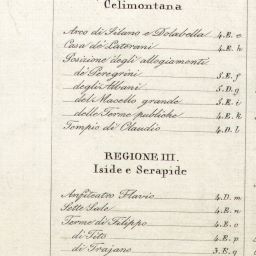 Celimontana
Arco di Silano e Dolabella 4.E.e
Casa de' Laterani 4.E.h
Posizione degli alloggiamenti
de' Peregrini 5.E.f
degli Albani 5.D.g
del Macello grande 5.E.i
delle Terme publiche 4.E.k
Tempio di Claudio 4.D.l
REGIONE III.
Iside e Serapide
Anfiteatro Flavio 4.D.m
Sette Sale 4.E.n
Terme di Filippo 4.E.o
di Tito 4.E.p
di Trajano 3.E.q